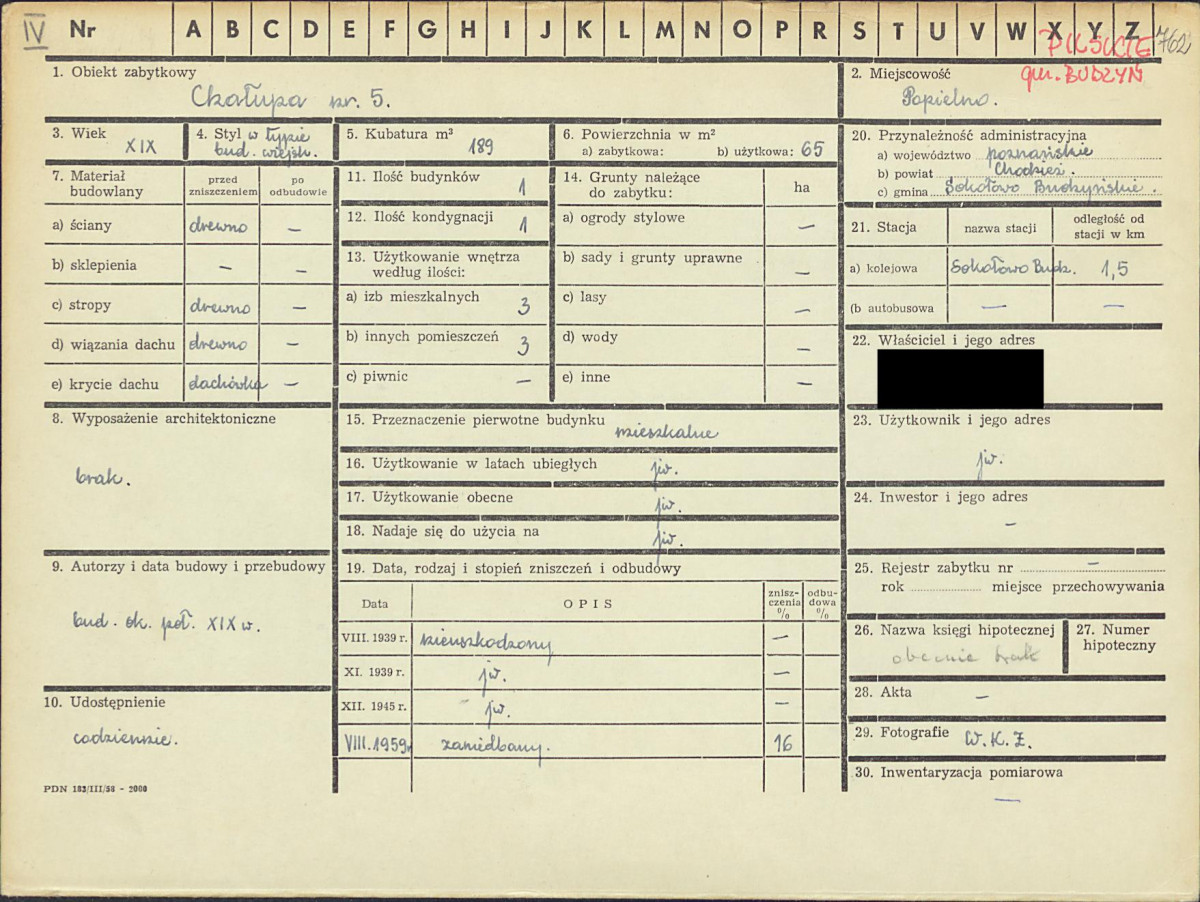 IV Nr A B C D E F G H I J K L M N O P R S T U V W X Y Z 762
PILSKIE
gm. BUDZYŃ
1. Obiekt zabytkowy
Chałupa nr. 5.
2. Miejscowość
Popielno.
3. Wiek
XIX
4. Styl w typie
bud. wiejsk.
5. Kubatura m³
189
6. Powierzchnia w m²
a) zabytkowa: b) użytkowa: 65
20. Przynależność administracyjna
a) województwo poznańskie
b) powiat Chodzież.
c) gmina Sokołowo Budzyńskie.
7. Materiał budowlany
przed zniszczeniem
po odbudowie
a) ściany drewno —
b) sklepienia — —
c) stropy drewno —
d) wiązania dachu drewno —
e) krycie dachu dachówka —
11. Ilość budynków 1
12. Ilość kondygnacji 1
13. Użytkowanie wnętrza
według ilości:
a) izb mieszkalnych 3
b) innych pomieszczeń 3
c) piwnic —
14. Grunty należące
do zabytku: ha
a) ogrody stylowe —
b) sady i grunty uprawne —
c) lasy —
d) wody —
e) inne —
21. Stacja nazwa stacji odległość od
stacji w km
a) kolejowa Sokołowo Budz. 1,5
(b autobusowa — —
22. Właściciel i jego adres
8. Wyposażenie architektoniczne
brak.
15. Przeznaczenie pierwotne budynku
mieszkalne
16. Użytkowanie w latach ubiegłych jw.
17. Użytkowanie obecne jw.
18. Nadaje się do użycia na jw.
23. Użytkownik i jego adres
jw.
24. Inwestor i jego adres
—
9. Autorzy i data budowy i przebudowy
bud. ok. poł. XIX w.
10. Udostępnienie
codziennie.
19. Data, rodzaj i stopień zniszczeń i odbudowy
Data OPIS znisz-
czenia
% odbu-
dowa
%
VIII. 1939 r. nieuszkodzony —
XI. 1939 r. jw. —
XII. 1945 r. jw. —
VIII. 1959 r zaniedbany. 16
25. Rejestr zabytku nr —
rok miejsce przechowywania
26. Nazwa księgi hipotecznej
obecnie brak
27. Numer
hipoteczny
28. Akta —
29. Fotografie W. K. Z.
30. Inwentaryzacja pomiarowa
—
PDN 183/III/58 - 2000